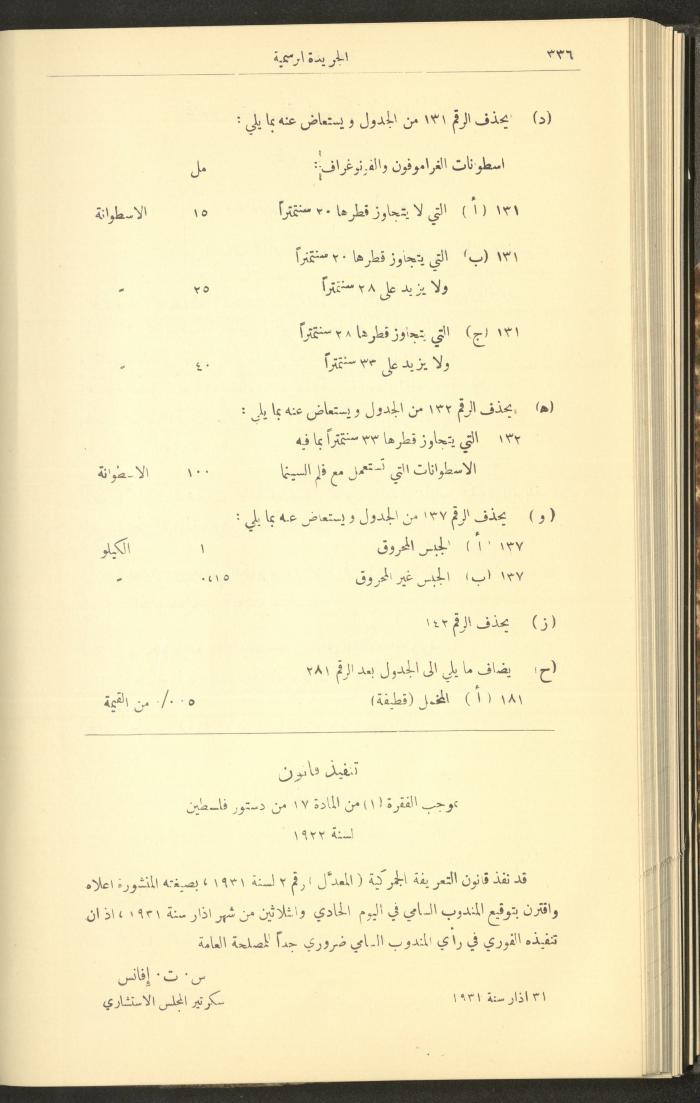 ٣٣٦ الجريدة الرسمية
(د) يحذف الرقم ١٣١ من الجدول ويستعاض عنه بما يلي :
اسطونات الغراموفون والفونوغراف : مل
١٣١ (أ) التي لا يتجاوز قطرها ٢٠ سنتمتراً ١٥ الاسطوانة
١٣١ (ب) التي يتجاوز قطرها ٢٠ سنتمتراً
ولا يزيد على ٢٨ سنتمتراً ٢٥ "
١٣١ (ج) التي يتجاوز قطرها ٢٨ سنتمتراً
ولا يزيد على ٣٣ سنتمتراً ٤٠ "
(ه) يحذف الرقم ١٣٢ من الجدول ويستعاض عنه بما يلي :
١٣٢ التي يتجاوز قطرها ٣٣ سنتمتراً بما فيه
الاسطوانات التي تستعمل مع فلم السينما ١٠٠ الاسطوانة
(و) يحذف الرقم ١٣٧ من الجدول ويستعاض عنه بما يلي :
١٣٧ (أ) الجبس المحروق ١ الكيلو
١٣٧ (ب) الجبس غير المحروق ٠،١٥ "
(ز) يحذف الرقم ١٤٢
(ح) يضاف ما يلي الى الجدول بعد الرقم ٢٨١
١٨١ (أ) المخمل (قطيفة) ٥ ٠/٠ من القيمة
تنفيذ قانون
بموجب الفقرة (١) من المادة ١٧ من دستور فلسطين
لسنة ١٩٢٢
قد نفذ قانون التعريفة الجمركية (المعدّل) رقم ٢ لسنة ١٩٣١ ، بصيغته المنشورة اعلاه
واقترن بتوقيع المندوب السامي في اليوم الحادي والثلاثين من شهر اذار سنة ١٩٣١ ، اذ ان
تنفيذه الفوري في رأي المندوب السامي ضروري جداً للمصلحة العامة
س . ت . إفانس
٣١ اذار سنة ١٩٣١ سكرتير المجلس الاستشاري